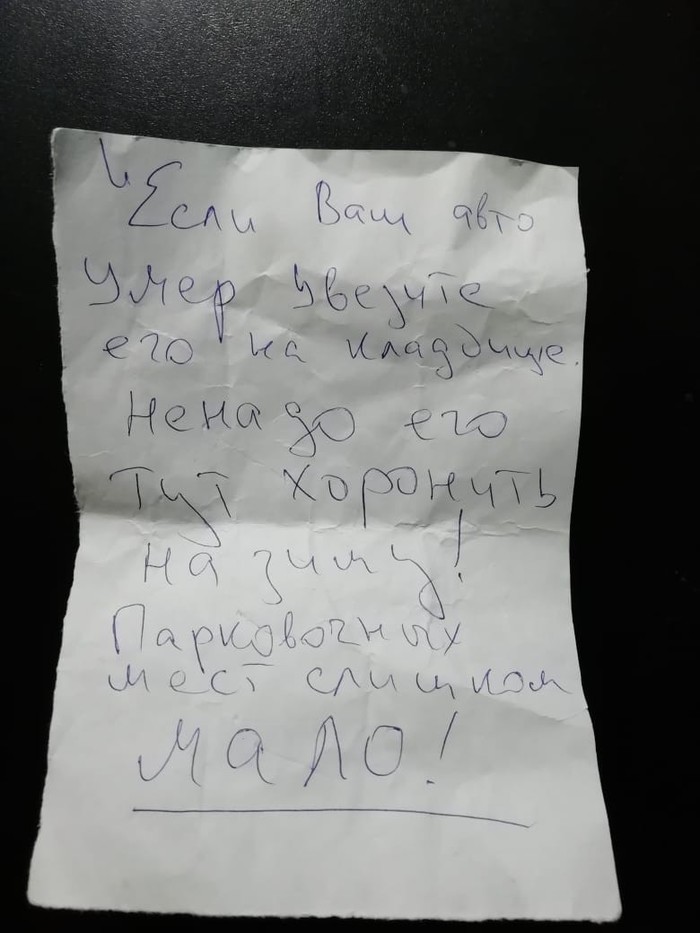 Если Ваш авто
умер увезите
его на кладбище.
Ненадо его
тут хоронить
на зиму!
Парковочных
мест слишком
мало!